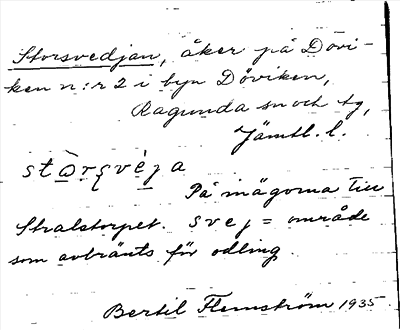 Storsvedjan, åker på Dövi-
ken n:r 2 i byn Döviken,
Ragunda sn och tg,
Jämtl. l.
stɷ̀rʂvèja
På inägorna till
Stralstorpet. svej = område
som avbränts för odling.
Bertil Flemström 1935